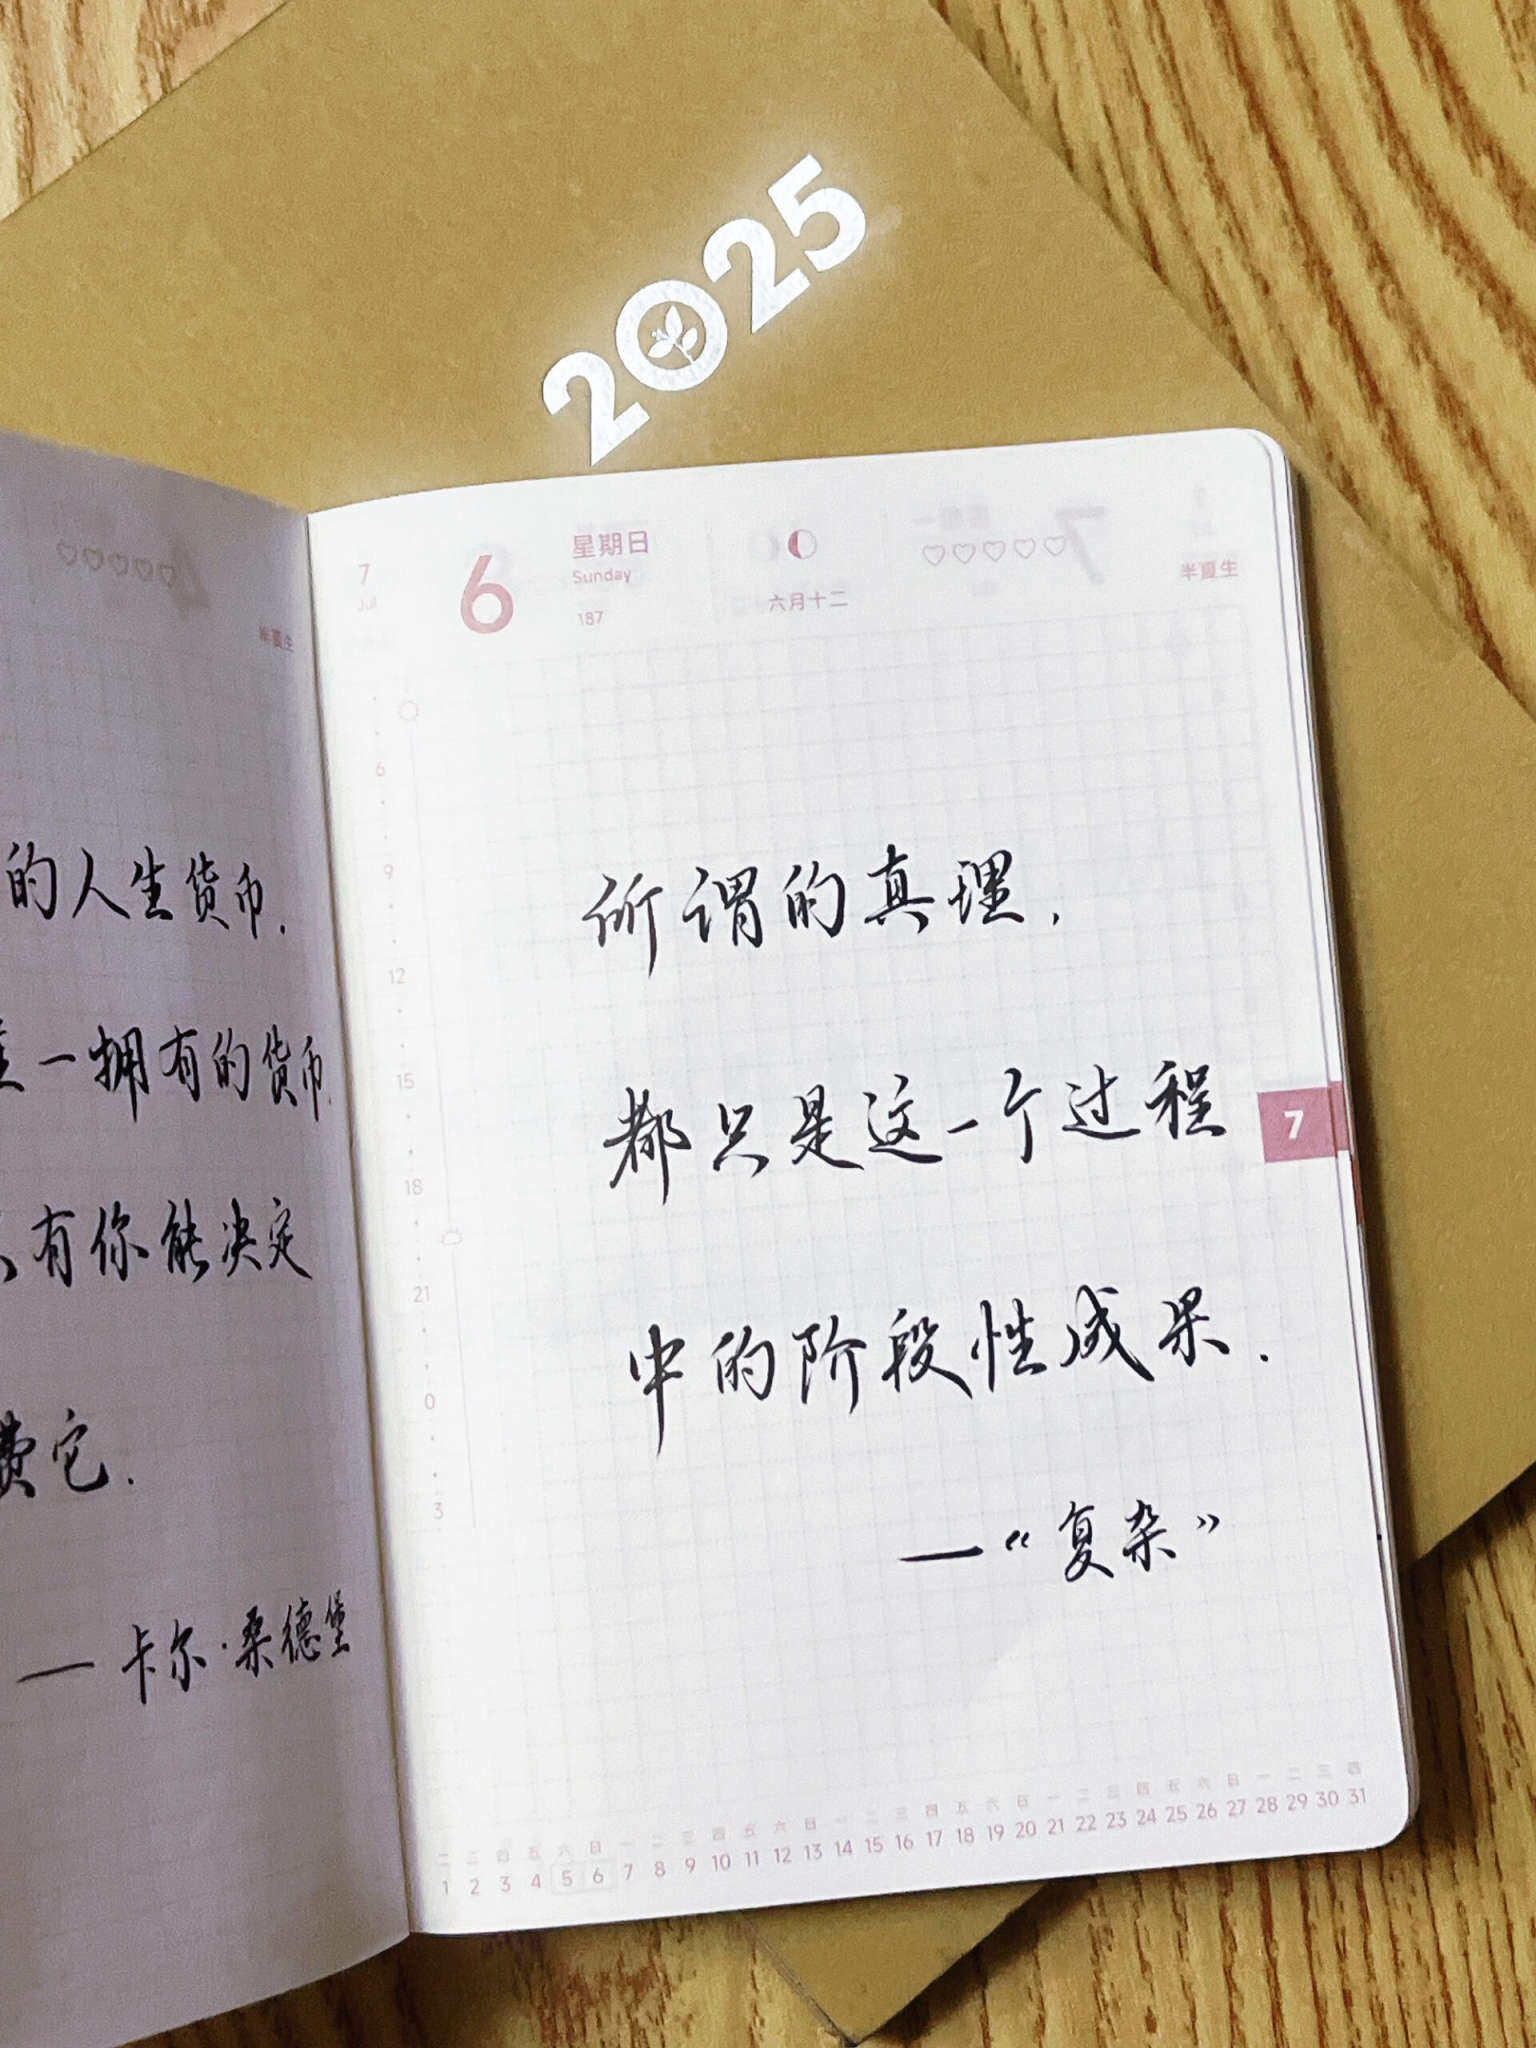 2025
半夏生
的人生货币.
一拥有的货币.
有你能决定
费它.
— 卡尔·桑德堡
7
Jul
6
星期日
Sunday
187
六月十二
半夏生
6
9
12
15
18
21
0
3
所谓的真理.
都只是这一个过程
中的阶段性成果.
—“复杂”
7
二 三 四 五 六 日 一 二 三 四 五 六 日 一 二 三 四 五 六 日 一 二 三 四 五 六 日 一 二 三 四
1 2 3 4 5 6 7 8 9 10 11 12 13 14 15 16 17 18 19 20 21 22 23 24 25 26 27 28 29 30 31